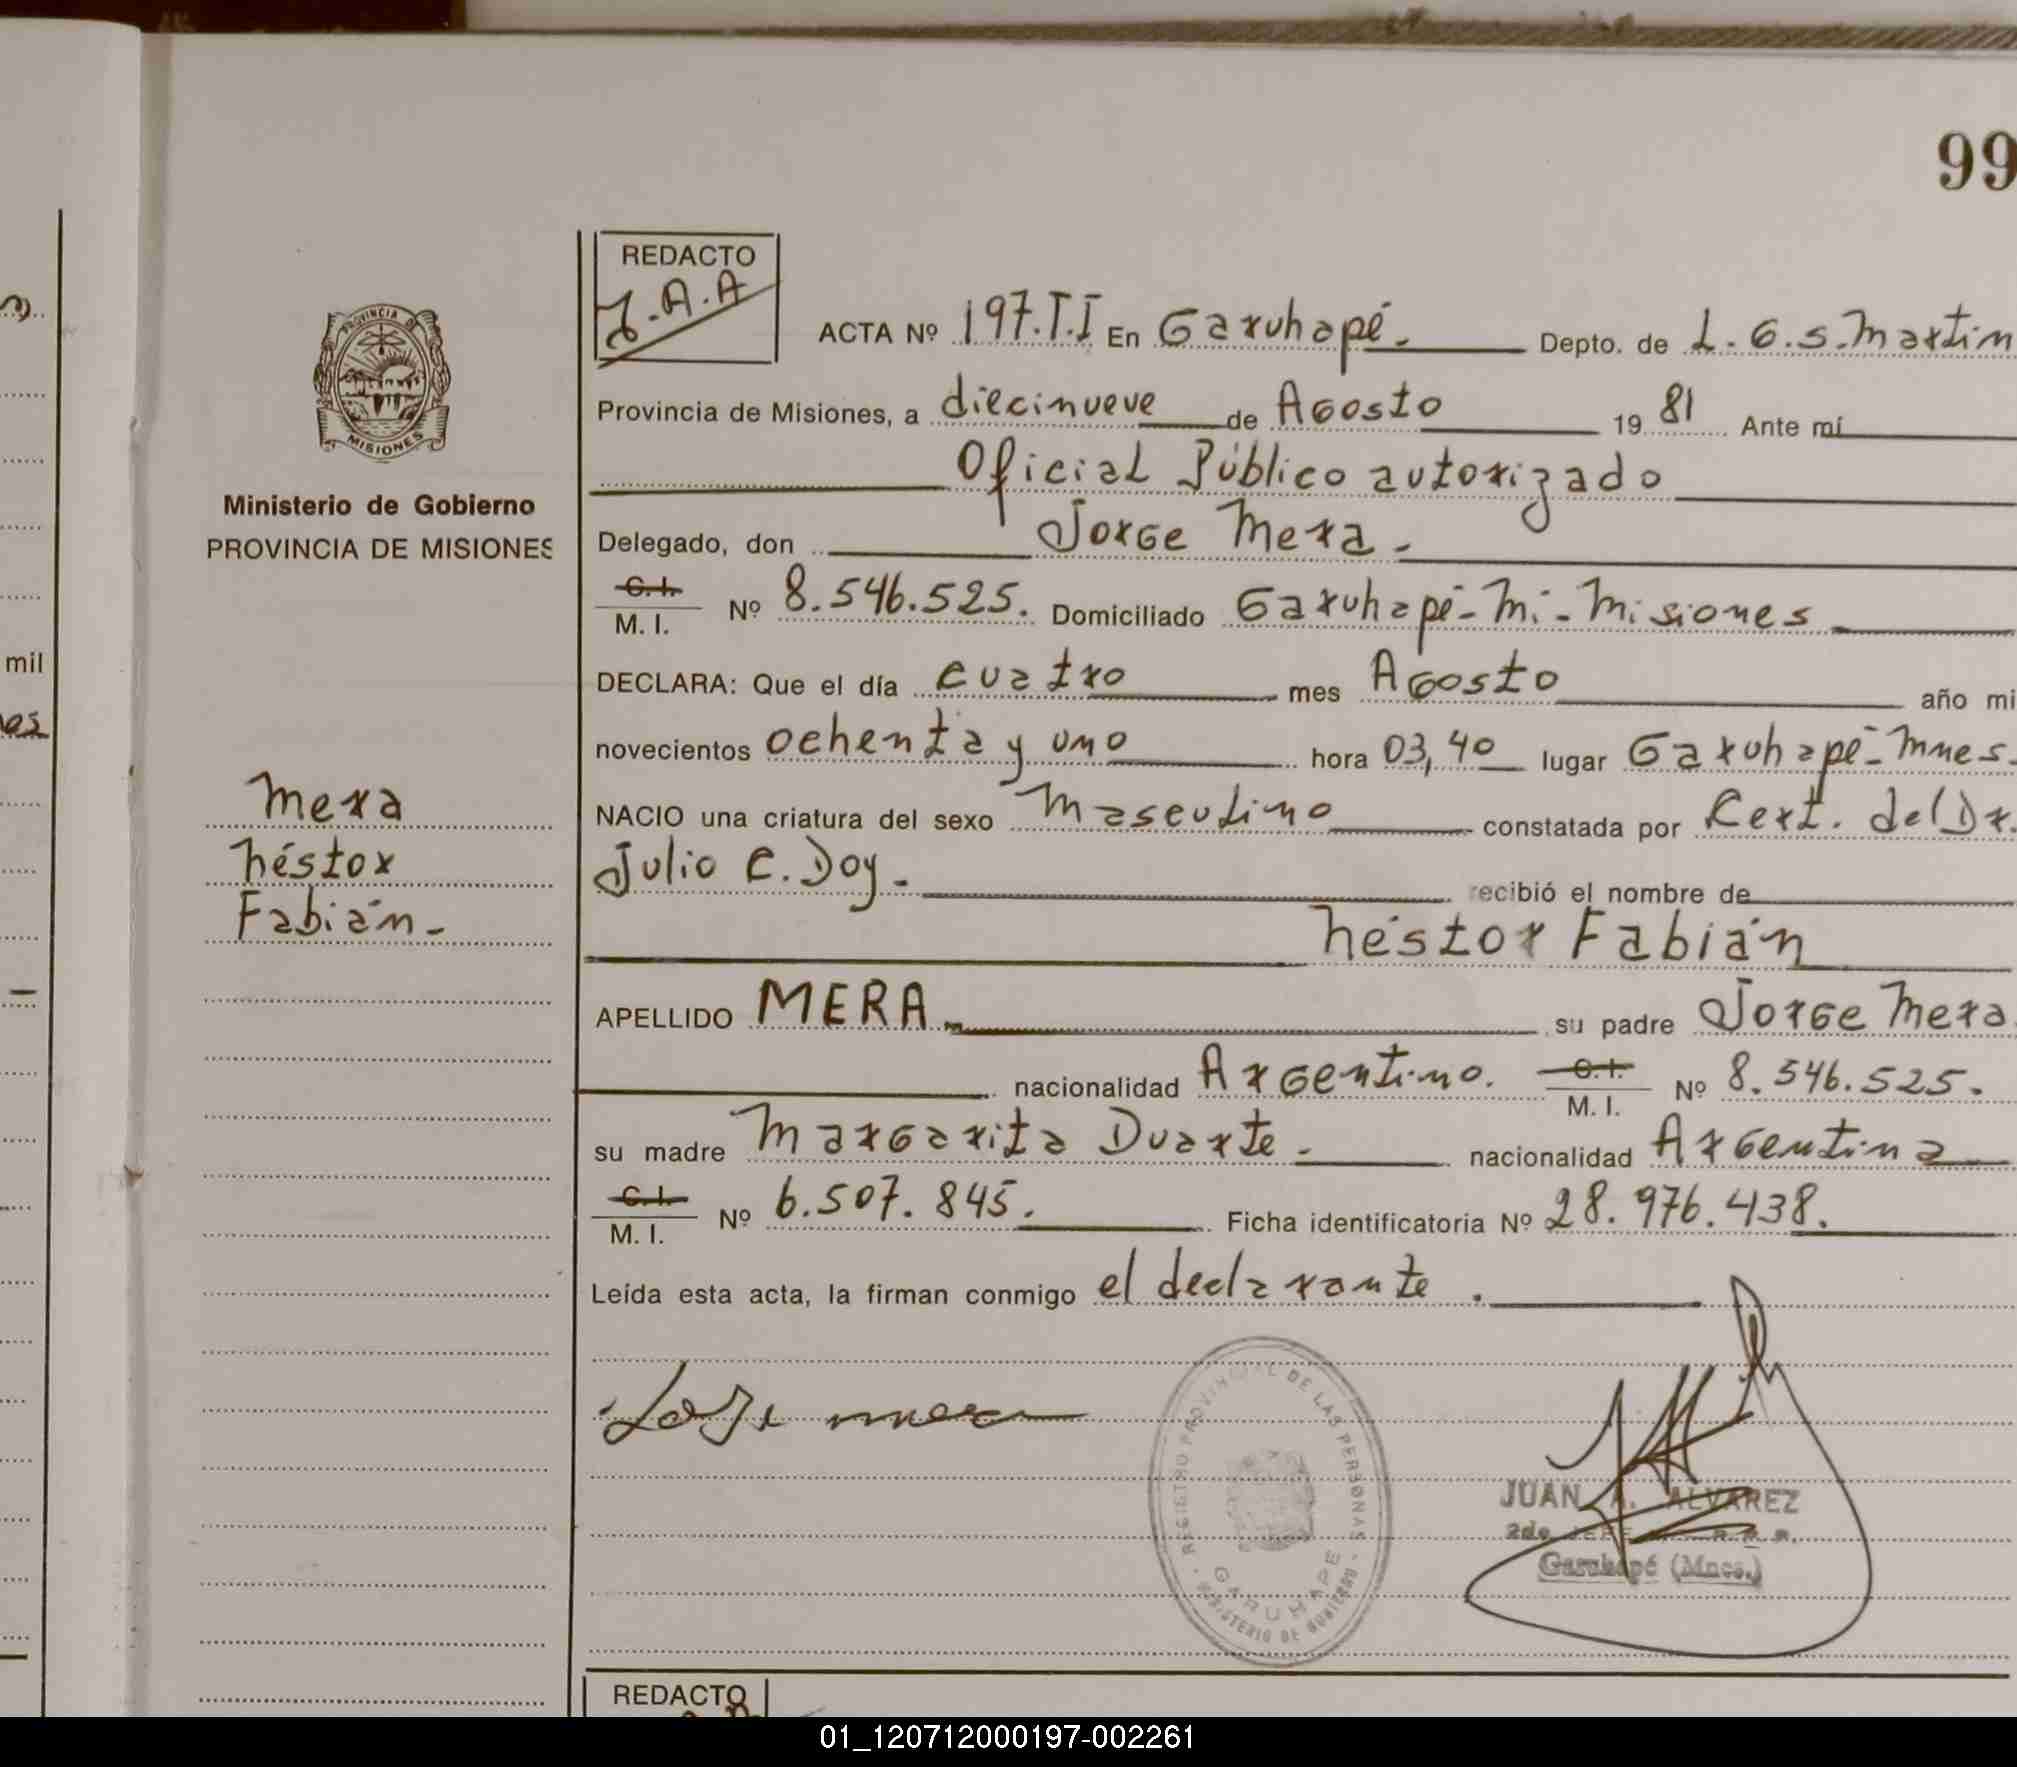 99
REDACTO
J.A.A
ACTA Nº 197.T.I En Garuhapé. Depto. de L.G.S.Martin
Provincia de Misiones, a diecinueve de Agosto 19 81 Ante mí
Oficial Público autorizado
Delegado, don Jorge Mera.
C.I.
M. I. Nº 8.546.525. Domiciliado Garuhapé-Mi-Misiones
DECLARA: Que el día cuatro mes Agosto año mi
novecientos ochenta y uno hora 03,40 lugar Garuhapé-Mnes.
NACIO una criatura del sexo Masculino constatada por Cert. del Dr.
Julio C. Doy. recibió el nombre de
Héstor Fabián
APELLIDO MERA su padre Jorge Mera
nacionalidad Argentino. C.I.
M. I. Nº 8.546.525.
su madre Margarita Duarte. nacionalidad Argentina
C.I.
M. I. Nº 6.507.845. Ficha identificatoria Nº 28.976.438.
Leída esta acta, la firman conmigo el declarante.
Jorge mera
REGISTRO PROVINCIAL DE LAS PERSONAS
GARUHAPE
MINISTERIO DE GOBIERNO
JUAN A. ALVAREZ
2do. JEFE
Garuhapé (Mnes.)
PROVINCIA DE
MISIONES
Ministerio de Gobierno
PROVINCIA DE MISIONES
Mera
Héstor
Fabián.
mil
REDACTO
01_120712000197-002261